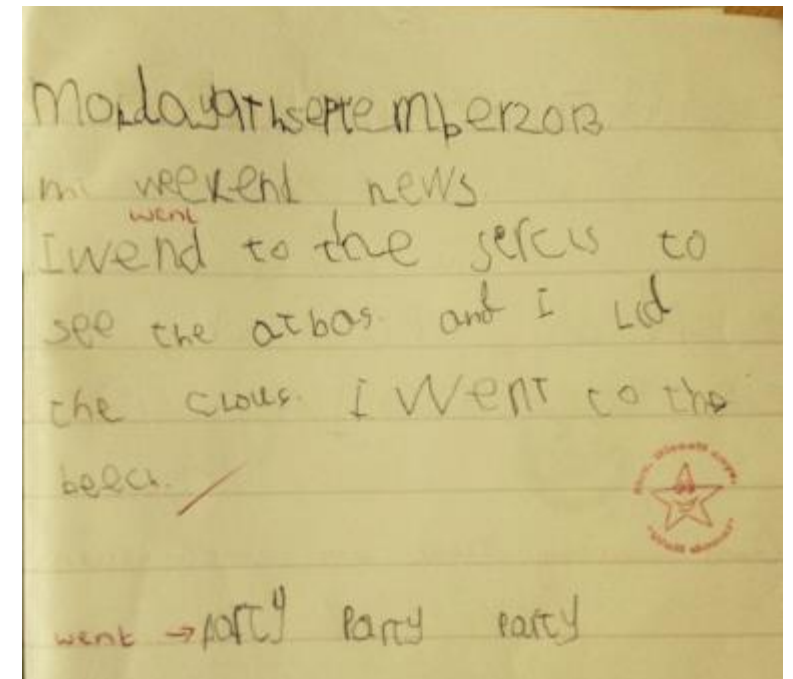 Monday 9th september 2013
mi weekend news
went
I wend to the sercus to
see the atbas. and I Lid
the clous. I Went to the
beech.
went → party Party party